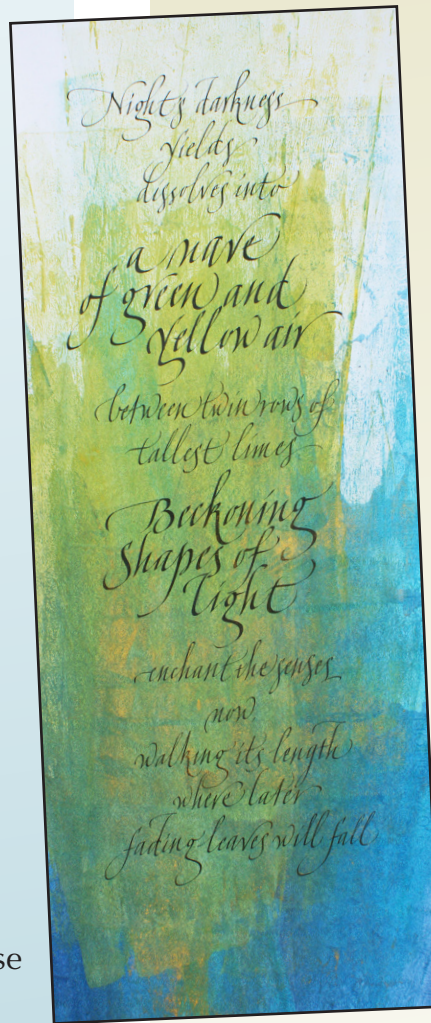 Night's darkness
yields
dissolves into
a nave
of green and
yellow air
between twin rows of
tallest limes
Beckoning
Shapes of
Light
enchant the senses
now
walking its length
where later
fading leaves will fall
se